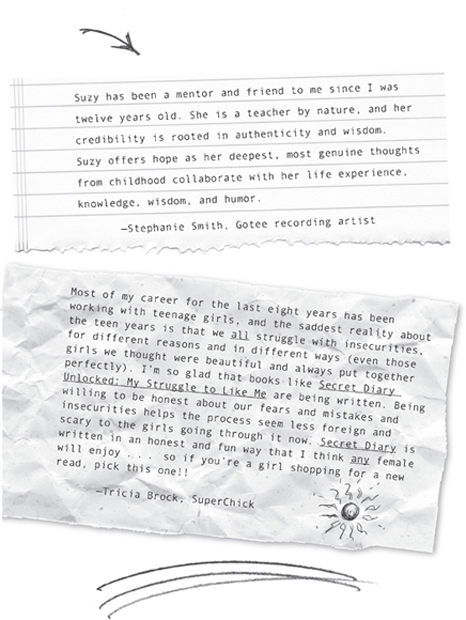 Suzy has been a mentor and friend to me since I was
twelve years old. She is a teacher by nature, and her
credibility is rooted in authenticity and wisdom.
Suzy offers hope as her deepest, most genuine thoughts
from childhood collaborate with her life experience,
knowledge, wisdom, and humor.
—Stephanie Smith, Gotee recording artist
Most of my career for the last eight years has been
working with teenage girls, and the saddest reality about
the teen years is that we all struggle with insecurities,
for different reasons and in different ways (even those
girls we thought were beautiful and always put together
perfectly). I'm so glad that books like Secret Diary
Unlocked: My Struggle to Like Me are being written. Being
willing to be honest about our fears and mistakes and
insecurities helps the process seem less foreign and
scary to the girls going through it now. Secret Diary is
written in an honest and fun way that I think any female
will enjoy . . . so if you're a girl shopping for a new
read, pick this one!!
—Tricia Brock, SuperChick